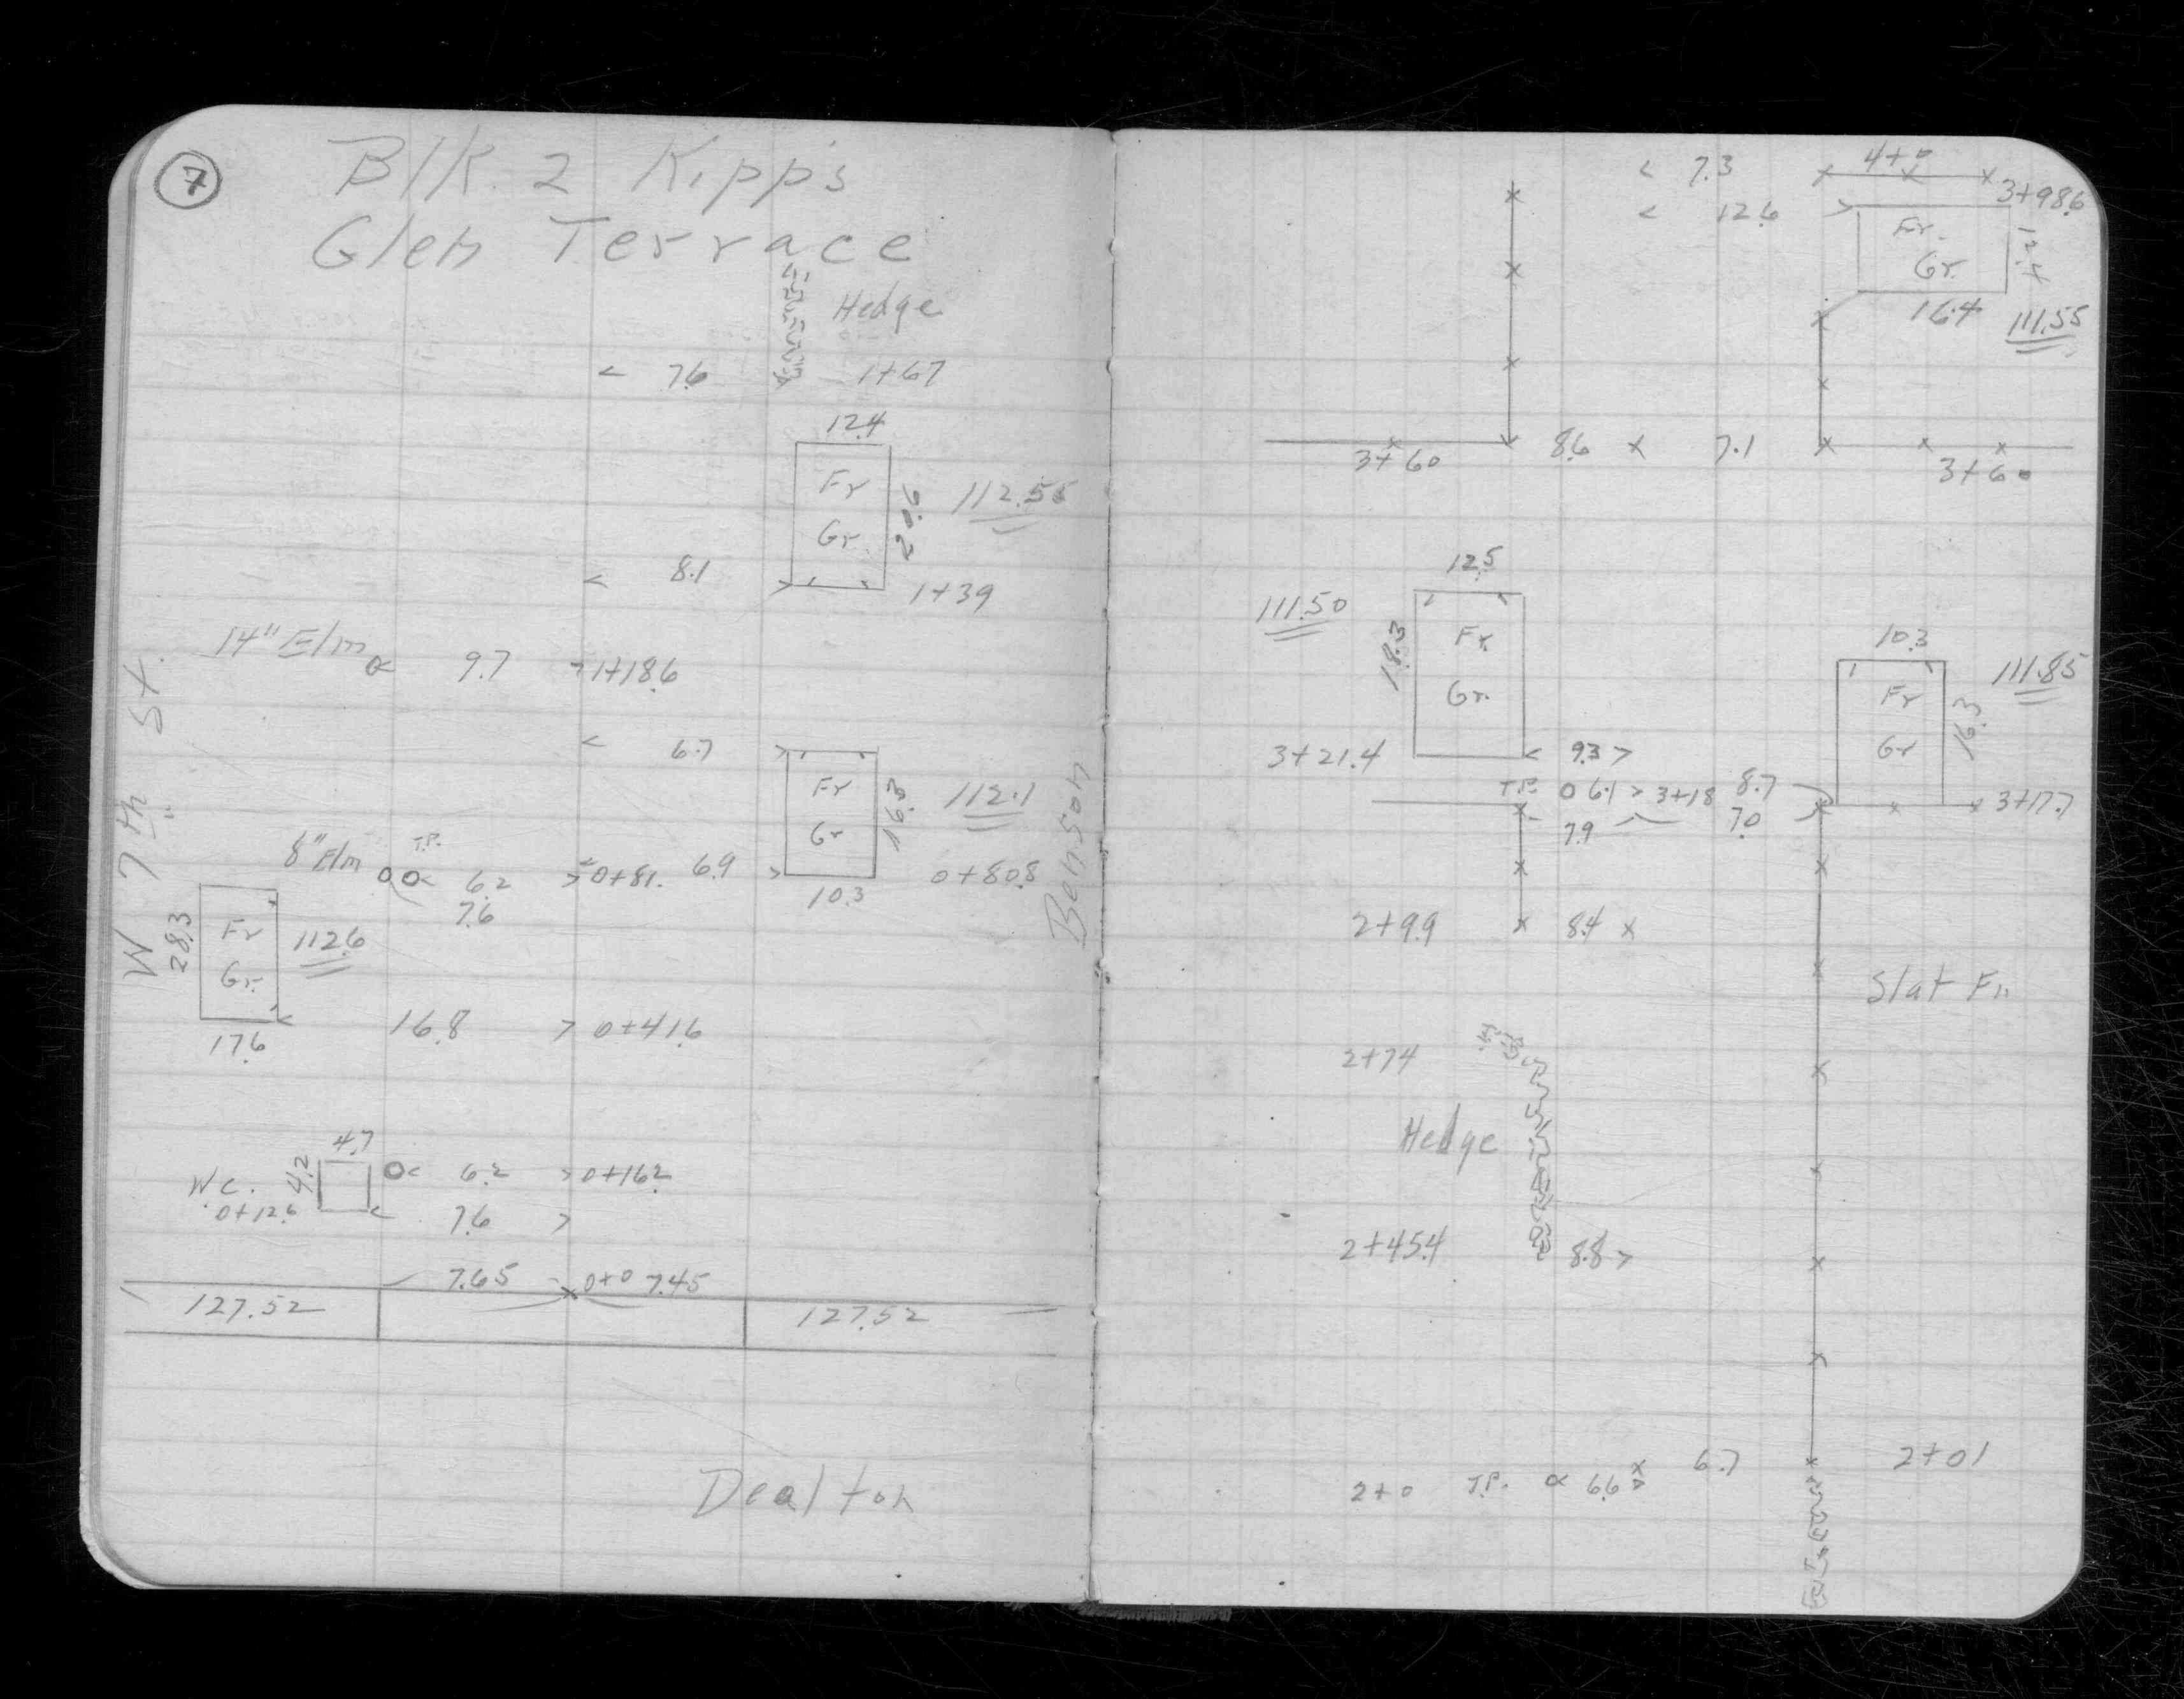 7
Blk. 2 Kipp's
Glen Terrace
Hedge
< 7.6 1+67
12.4
Fr
Gr.
20.6
112.55
< 8.1 > 1+39
14" Elm
< 9.7 > 1+18.6
W 7th St.
< 6.7 >
Fr
Gr
16.3
112.1
Benson
8" Elm T.P.
< 6.2 > 0+81. 6.9 > 0+80.8
7.6
10.3
28.3
Fr
Gr.
112.6
17.6
< 16.8 > 0+41.6
4.7
4.2
W.C.
< 6.2 > 0+16.2
0+12.6
< 7.6 >
7.65 0+0 7.45
127.52 127.52
Dealton
< 7.3 4+0
3+98.6
< 12.6 >
Fr.
Gr.
12.1
16.4
111.55
3+60 8.6 x 7.1 3+60
12.5
111.50
18.3
Fr.
Gr.
10.3
111.85
Fr
Gr
16.3
3+21.4 < 9.3 >
T.P. 6.1 > 3+18 8.7 3+17.7
7.9 7.0
2+99 x 8.4 x
Slat Fn
2+74
Hedge
2+45.4 8.8 >
6.7 2+01
2+0 T.P. < 6.6 >